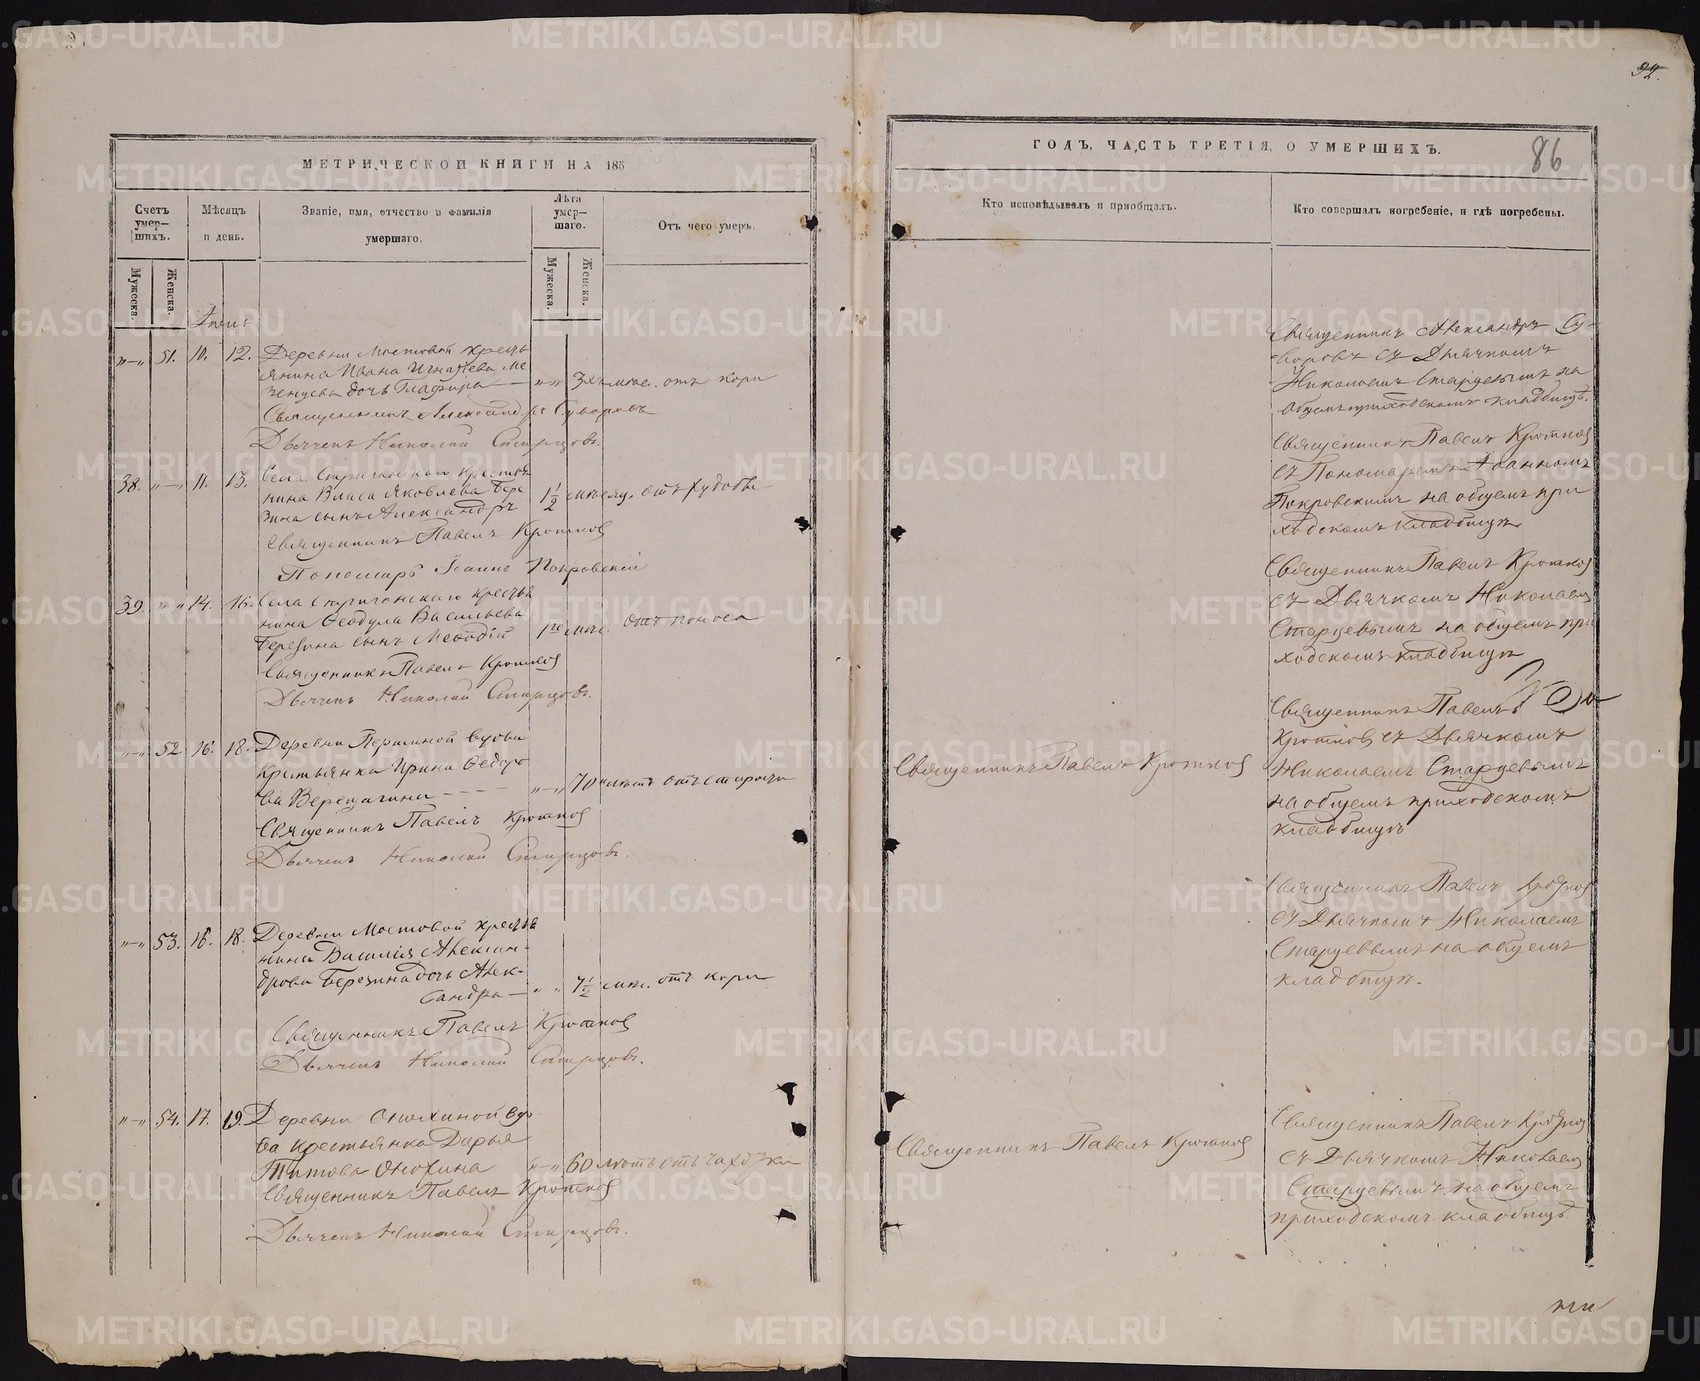 94.
86
МЕТРИЧЕСКОЙ КНИГИ НА 185
Счетъ умер-шихъ.
Мѣсяцъ и день.
Званіе, имя, отчество и фамилія умершаго.
Лѣта умер-шаго.
Отъ чего умеръ.
Мужеска.
Женска.
Мужеска.
Женска.
51. 10. 12. Деревни Мостовой кресть
янина Ивана Игнатьева Ме
дочь Глафира 3хъ мѣс. отъ кори
Священникъ Александръ Суворовъ
Дьячекъ Николай Старцовъ.
38. 11. 13. Села крестья
нина Власа Яковлева Бере
зина сынъ Александръ 1 1/2 отъ худобы
Священникъ Павелъ Кротков
Пономарь Іоаннъ Покровскій
39. 14. 16. Села крестья
нина Ѳеодула Васильева
Березина сынъ Меѳодій отъ поноса
Священникъ Павелъ Кротков
Дьячекъ Николай Старцовъ.
52. 16. 18. Деревни Першиной вдова
крестьянка Ирина Ѳедоро
ва Верещагина 70 лѣтъ отъ старости
Священникъ Павелъ Кротков
Дьячекъ Николай Старцовъ.
53. 16. 18. Деревни Мостовой крестья
нина Василія Алексан-
дрова Березина дочь Алек-
сандра 7 1/2 мѣс. отъ кори
Священникъ Павелъ Кротков
Дьячекъ Николай Старцовъ.
54. 17. 19. Деревни Онохиной вдо-
ва крестьянка Дарья
Титова Онохина 60 лѣтъ отъ чахотки
Священникъ Павелъ Кротков
Дьячекъ Николай Старцовъ.
ГОДЪ, ЧАСТЬ ТРЕТІЯ, О УМЕРШИХЪ.
Кто исповѣдывалъ и пріобщалъ.
Кто совершалъ погребеніе, и гдѣ погребены.
Священникъ Александръ Су-
воровъ съ Дьячкомъ
Николаемъ Старцевымъ на
общемъ приходскомъ кладбищѣ.
Священникъ Павелъ Кротков
съ Пономаремъ Іоанномъ
Покровскимъ на общемъ при
ходскомъ кладбищѣ
Священникъ Павелъ Кротков
съ Дьячкомъ Николаем
Старцевымъ на общемъ при
ходскомъ кладбищѣ
Священникъ Павелъ Кротков
Священникъ Павелъ
Кротков съ Дьячкомъ
Николаемъ Старцевымъ
на общемъ приходскомъ
кладбищѣ
Священникъ Павелъ Кротков
съ Дьячкомъ Николаемъ
Старцевымъ на общемъ
кладбищѣ.
Священникъ Павелъ Кротков
Священникъ Павелъ Кротков
съ Дьячкомъ Николаем
Старцевымъ на общемъ
приходскомъ кладбищѣ.
METRIKI.GASO-URAL.RU